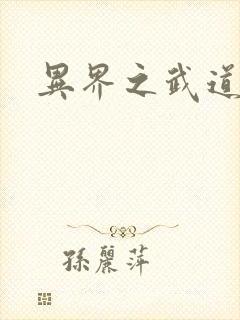 異界之武道
孫麗萍